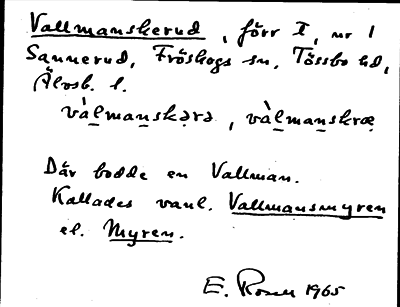 Vallmanskerud, förr T, nr 1
Sannerud, Fröskogs sn, Tössbo hd,
Älvsb. l.
vàl̠man̠skərə, vàl̠man̠skræ̠
Där bodde en Vallman.
Kallades vanl. Vallmansmyren
el. Myren.
E. Rosell 1965